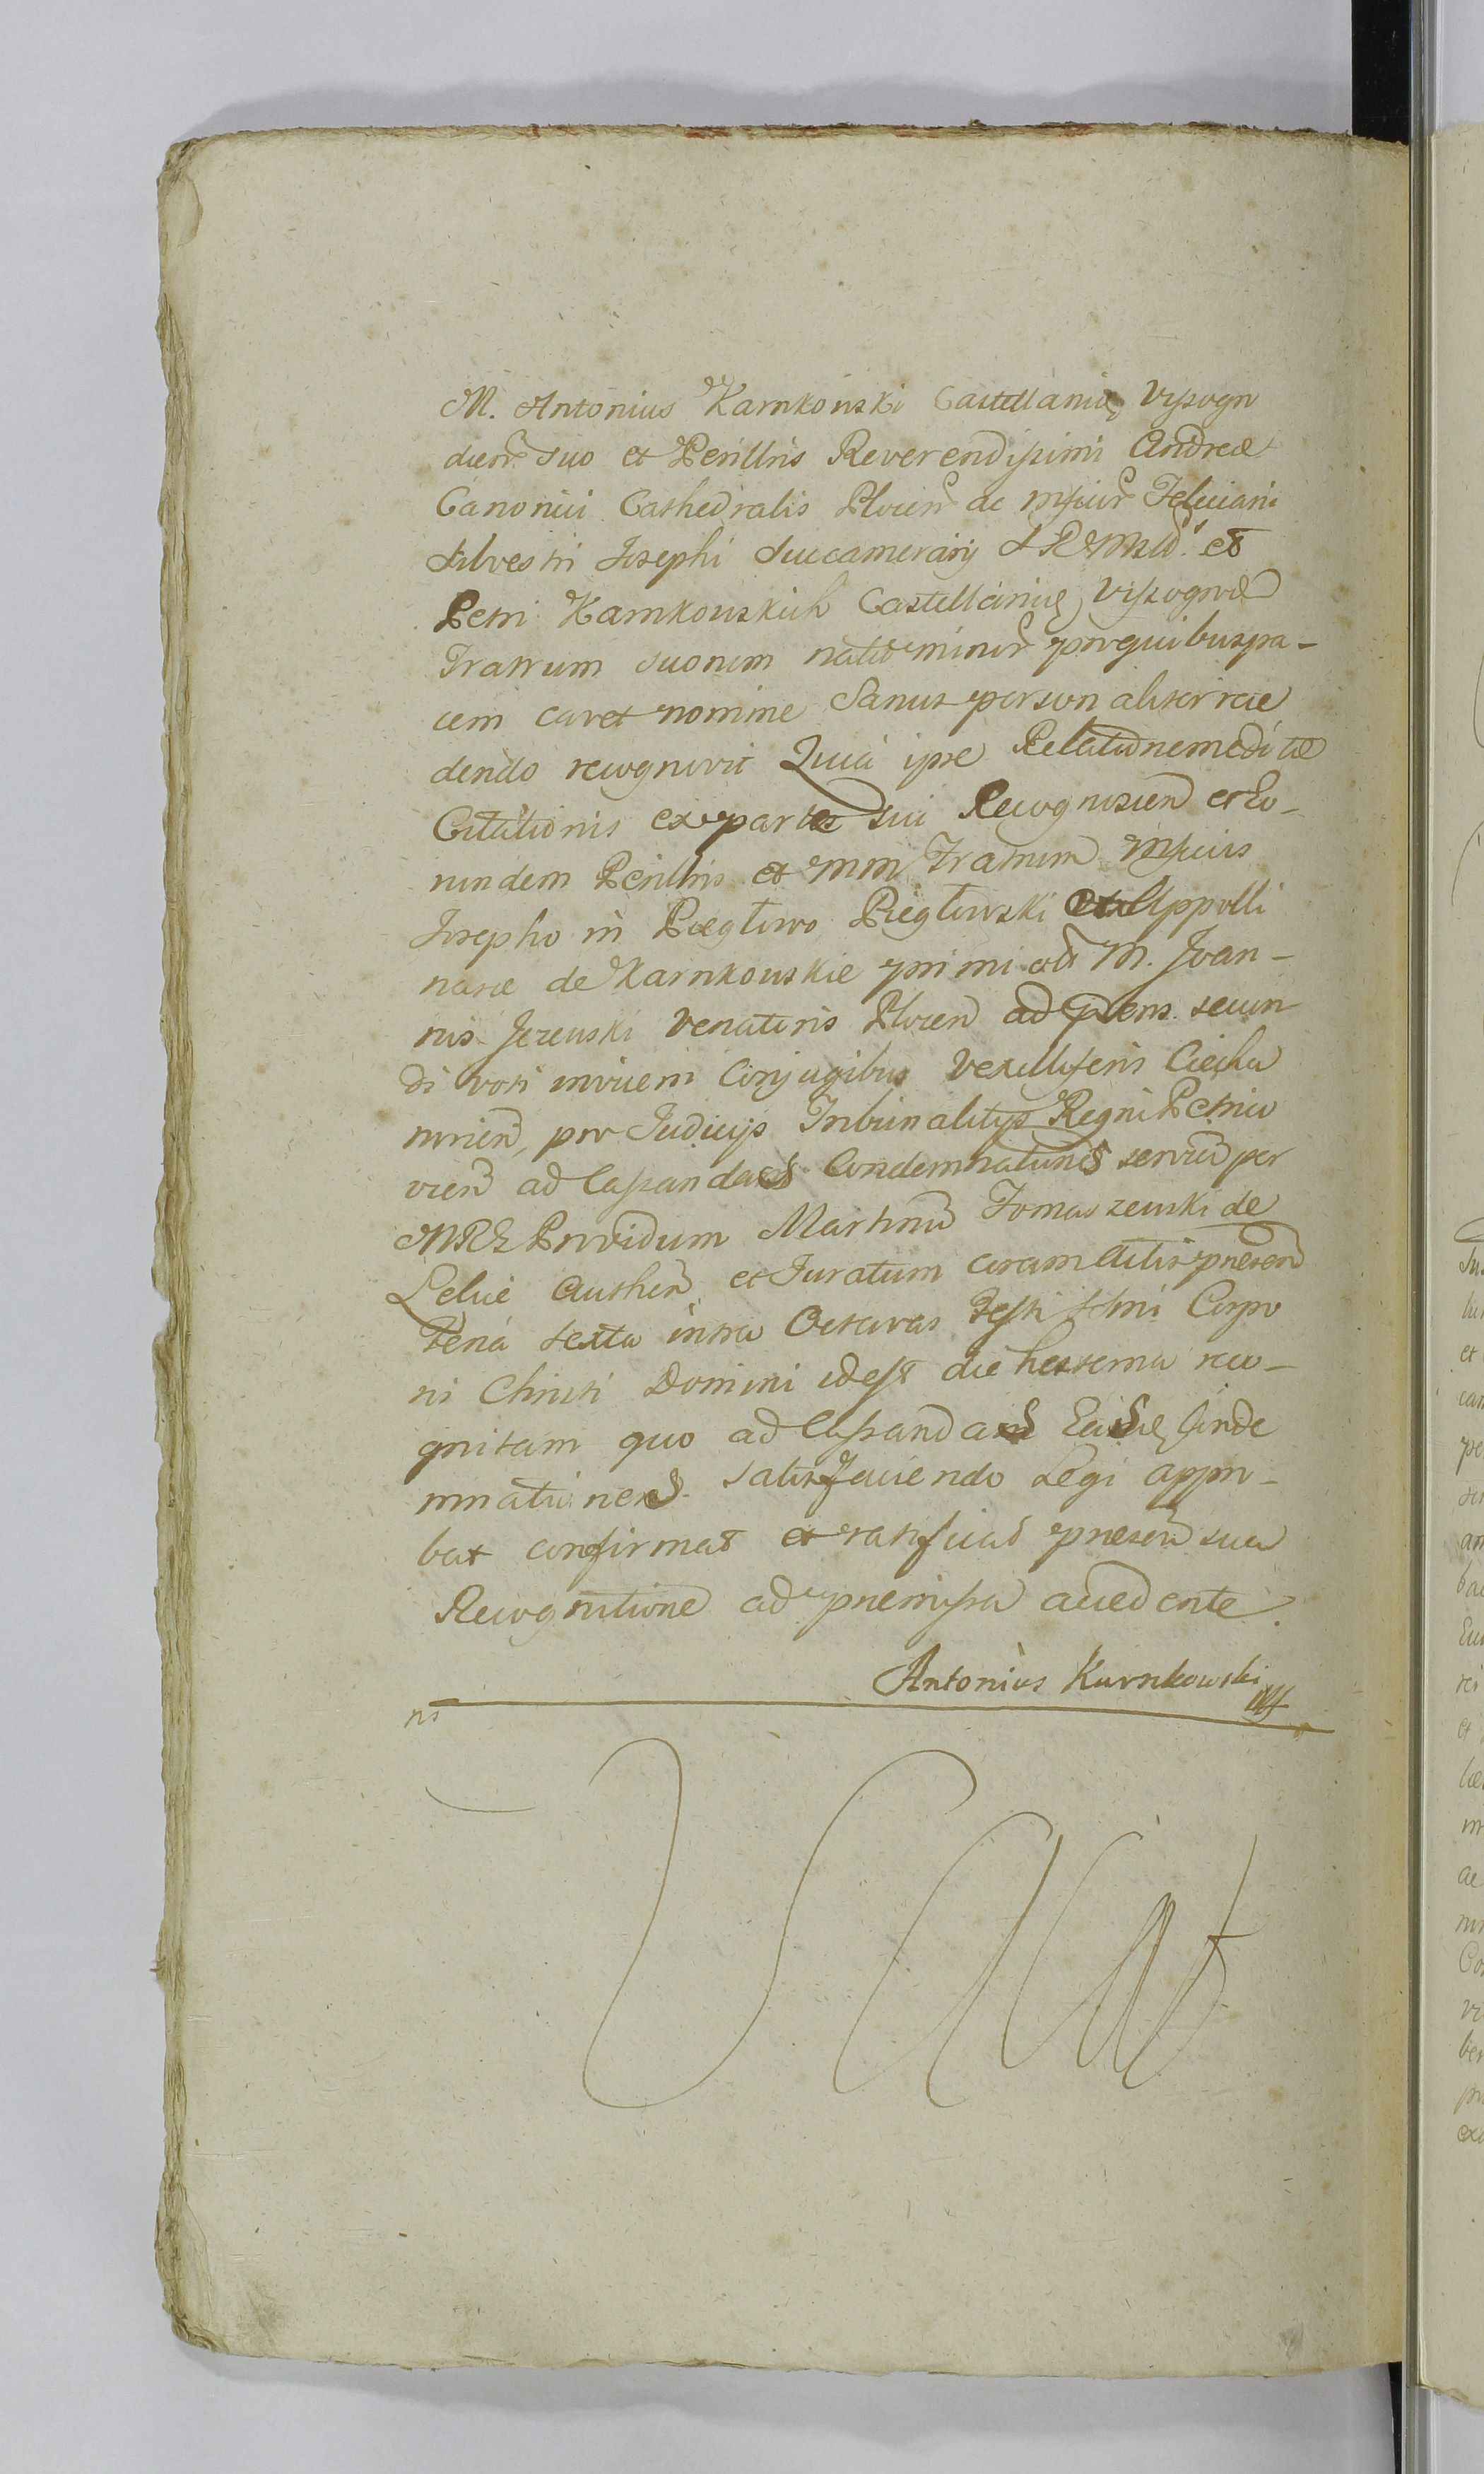 M. Antonius Karnkowski Castellanię Vyszogro
dien. suo et Perillris Reverendissimi Andreæ
Canonici Cathedralis Plocen ac Mfcor Feliciani
Silvestri Josephi Succamerarij et
Petri Karnkowskich Castellanię Vyszogrod
Fratrum suorum natu minor pro quibus pa-
cem cavet nomine Sanus personaliter rece
dendo recognovit Quia ipse Relationem editæ
Citationis ex parte sui Recognoscen et Eo-
rundem Perillris et MM Fratrum Mfcis
Josepho in Pieglowo Pieglowski et Appolli
nare de Karnkowskie primi olt M. Joan-
nis Jezewski Venatoris Plocen ad præns. secun
di voti invicem Conjugibus Vexilliferis Ciecha
novien, pro Judicijs Tribunalitijs Regni Petrico
vien ad Cassandas Condemnationes servien per
MRG Providum Martinum Tomaszewski de
Lelice Authen et Juratum coram Actis præsen
Feria sexta intra Octavas Festi Sstmi Corpo
ris Christi Domini id est die hesterna reco-
gnitam quo ad Cassandas Easdę Conde
mnationes. Satisfaciendo Legi appro-
bat confirmat et ratificat præsen sua
Recognitione ad præmissa accedente.
Antonius Karnkowski
mp
ns
Vacat